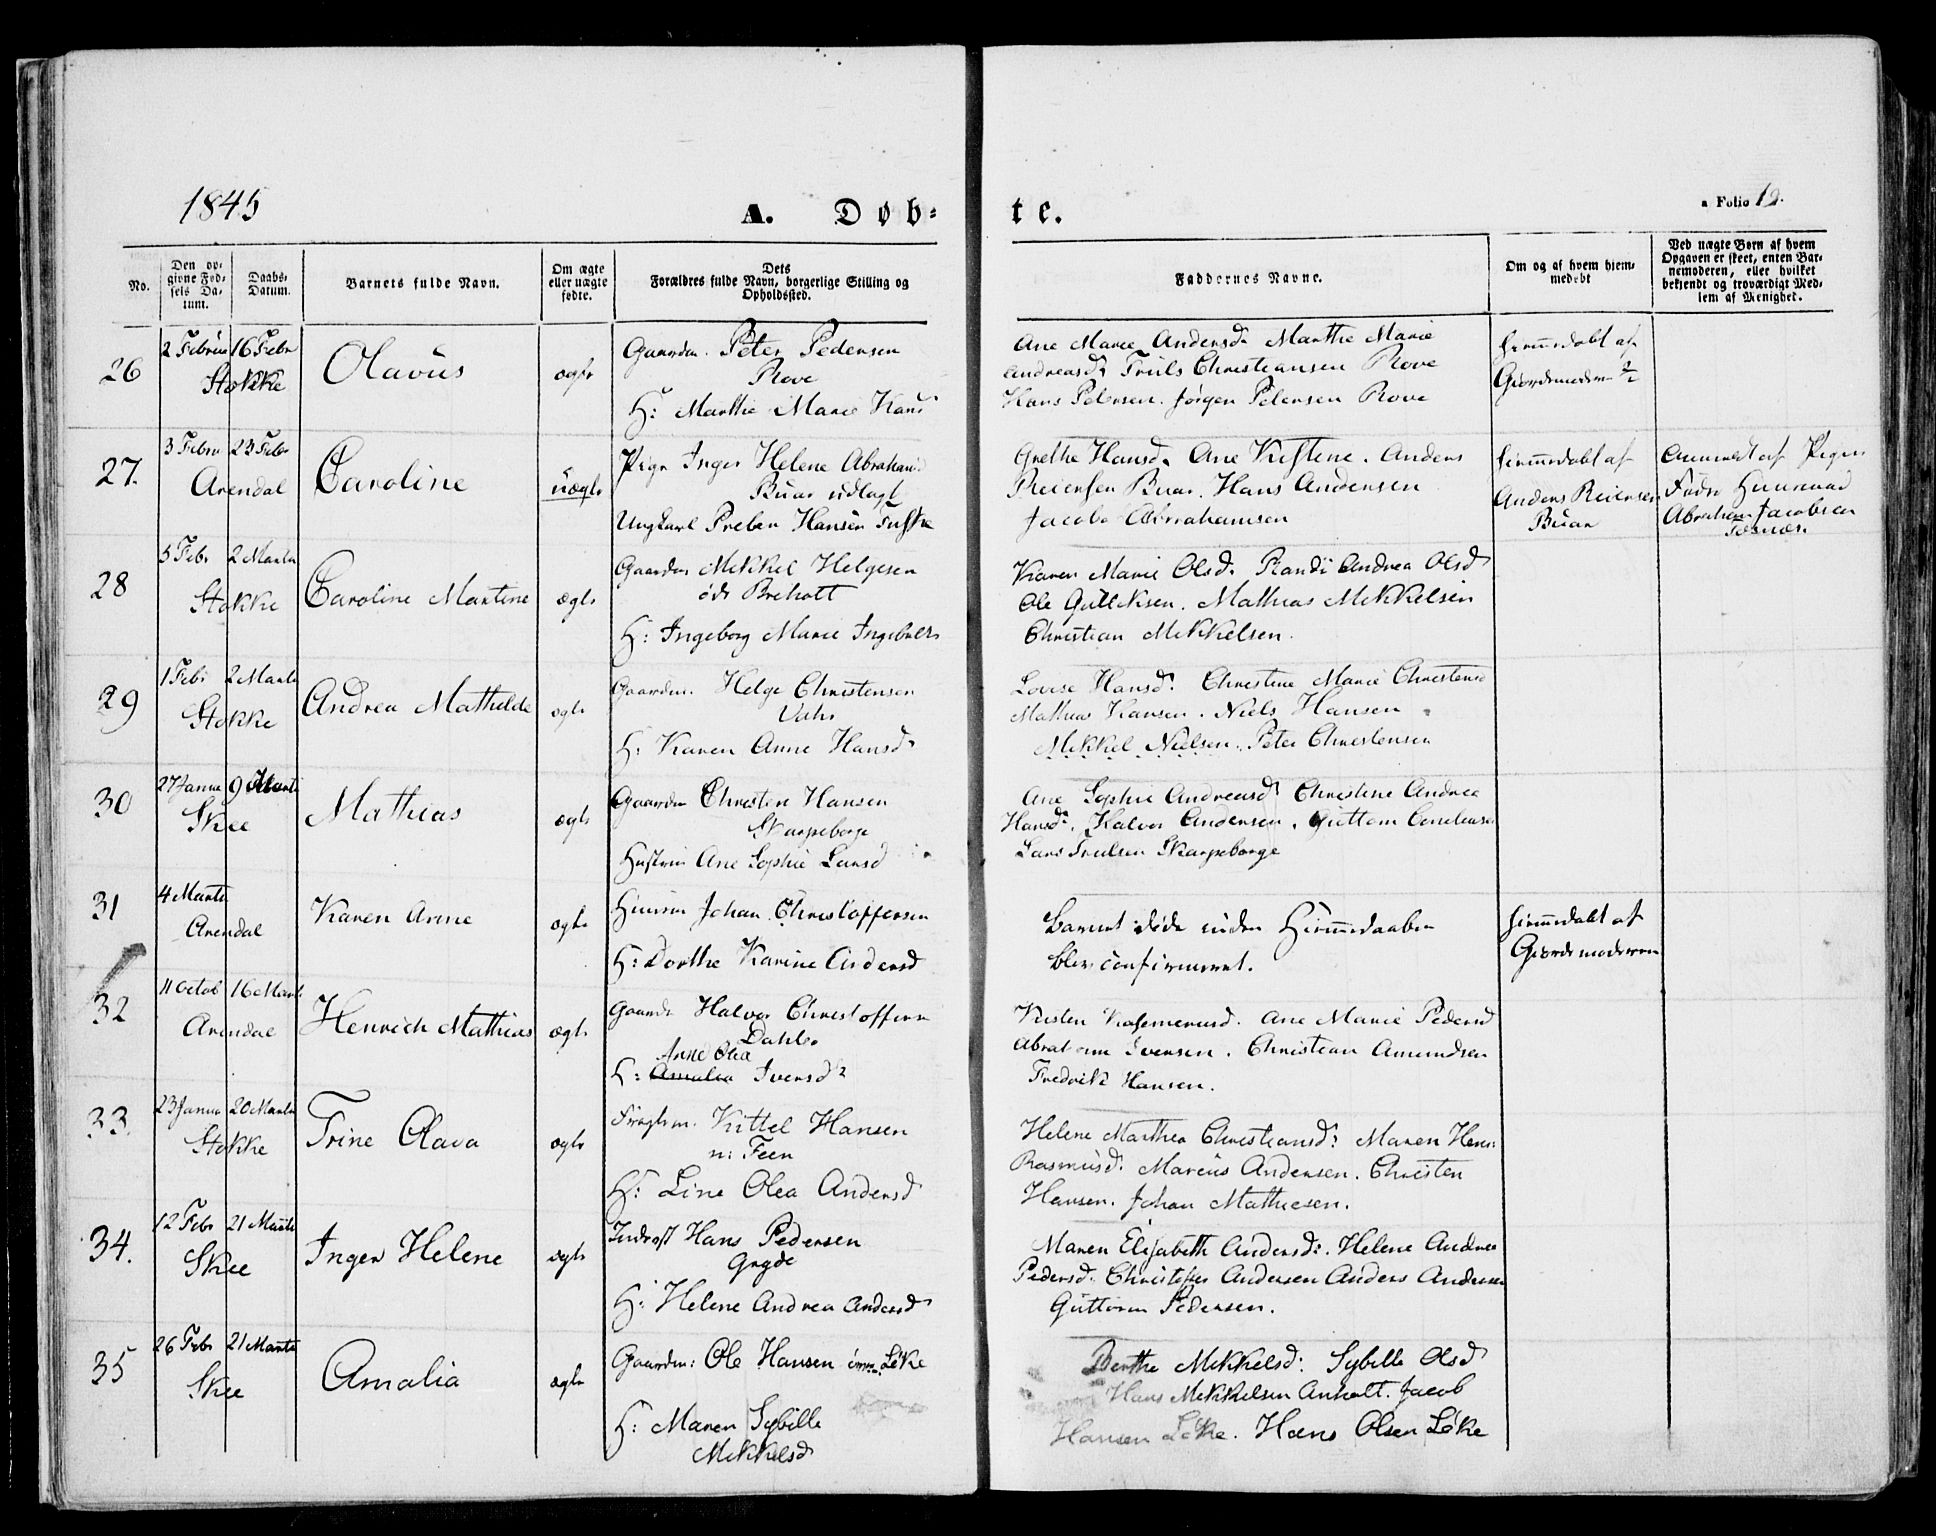 1845
A. Døb-
te.
a Folio 12.
No.
Den op-
givne Fød-
sels Da-
tum.
Daabs-
Datum.
Barnets fulde Navn.
Om ægte
eller uægte
fødte.
Dets
Forældres fulde Navn, borgerlige Stilling og
Opholdssted.
Faddernes Navne.
Om og af hvem hjem-
medøbt
Ved uægte Børn af hvem
Opgaven er skeet, enten Bar-
nemoderen, eller hvilket
bekjendt og troværdigt Med-
lem af Menighet.
26
2 Februa 16 Febr
Stokke
Olavus
ægte
Gaardm. Peter Pedersen
Rove
H: Marthe Marie Hans
Ane Marie Andersd. Marthe Marie
Andreasd. Truls Christiansen Rove
Hans Pedersen. Jørgen Pedersen Rove
hiemmedøbt af
Giordemoderen
27.
3 Febru 23 Febr
Arendal
Caroline
uægte
Pige Inger Helene Abraham
Buar udlagt
Ungkarl Preben Hansen
Grethe Hansd. Ane Kirstine. Anders
Reiersen Buar. Hans Andersen
Jacob Abrahamsen
hiemmedøbt af
Anders Reiersen
Buar
Anmeldt af Pigens
Fader Huusmand
Abraham Jacobsen
28
5 Febr 2 Marts
Stokke
Caroline Martine
ægte
Gaardm Mikkel Helgesen
H: Ingeborg Marie
Karen Marie Olsd. Randi Andrea Olsd
Ole Gulliksen. Mathias Mikkelsen
Christian Mikkelsen.
29
1 Febr 2 Marts
Stokke
Andrea Mathilde
ægte
Gaardm. Helge Christensen
H: Karen Anne Hansd
Lovise Hansd. Christine Marie Christensd
Mathias Hansen. Niels Hansen
Mikkel Nielsen. Peter Christensen
30
27 Janua 9 Marts
Skee
Mathias
ægte
Gaardm Christen Hansen
Skarpeborge
Hustru Ane Sophie Larsd
Ane Sophie Andreasd Christine Andrea
Hansd. Halvor Andersen. Guttorm
Lars Trulsen Skarpeborge
31
4 Marts
Arendal
Karen Anne
ægte
Huusm Johan Christoffersen
H: Dorthe Karine Andersd
Barnet døde inden Hiemmedaaben
blev confirmeret.
hiemmedøbt af
Giordemoderen
32
11 Octob 16 Marts
Arendal
Henrich Mathias
ægte
Gaardm Halvor Christoffersen
Dahl
Anne Olea
H: Amalia Iversd
Kirsten Ane Marie Pedersd
Abraham Iversen. Christian Amundsen
Fredrik Hansen.
33
23 Janua 20 Marts
Stokke
Trine Olava
ægte
Kittel Hansen
n: Feen
H: Line Olea Andersd
Helene Marthea Christiansd. Maren
Rasmusd. Marcus Andersen. Christen
Hansen. Johan Mathiesen.
34.
12 Febr 21 Marts
Skee
Inger Helene
ægte
Inderst Hans Pedersen
Gryde
H: Helene Andrea Andersd
Maren Elisabeth Andersd. Helene Andrea
Pedersd. Christoffer Andersen Anders Andersen
Guttorm Pedersen.
35
26 Febr 21 Marts
Skee
Amalia
ægte
Gaardm: Ole Hansen Løke
H: Maren Sybille
Mikkelsd
Berthe Mikkelsd: Sybille Olsd
Hans Mikkelsen Anholt. Jacob
Hansen Løke. Hans Olsen Løke